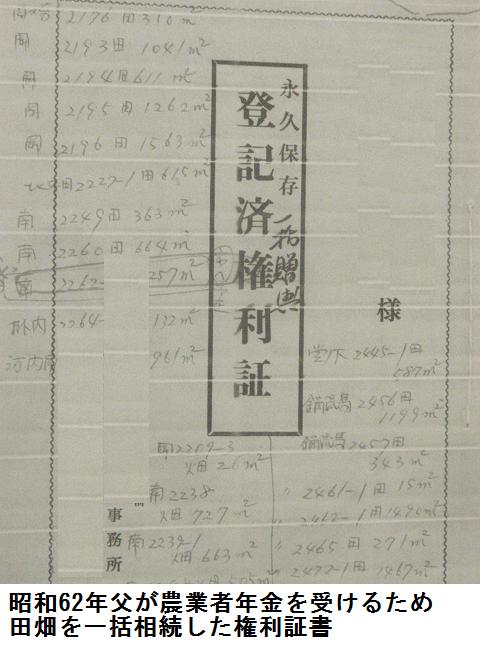 2176 田 310 m²
開 2193 田 1041 m²
開 2194 田 611 m²
開 2195 田 1262 m²
開 2196 田 1563 m²
田 2227-1 田 615 m²
南 2249 田 363 m²
南 2260 田 664 m²
南 2262- 257 m²
2264- 132 m²
河内 961 m²
永久保存
登記済権利証
一括贈与
様
堂下 2445-1 田
587 m²
2456 田
1199 m²
2457 田
343 m²
〃 2461-1 田 15 m²
〃 2462-1 田 1490 m²
〃 2465 田 271 m²
〃 2472-1 田 1467 m²
開 2209-3
畑 26 m²
南 2238
畑 727 m²
南 2239-1
畑 663 m²
事務所
昭和62年父が農業者年金を受けるため
田畑を一括相続した権利証書